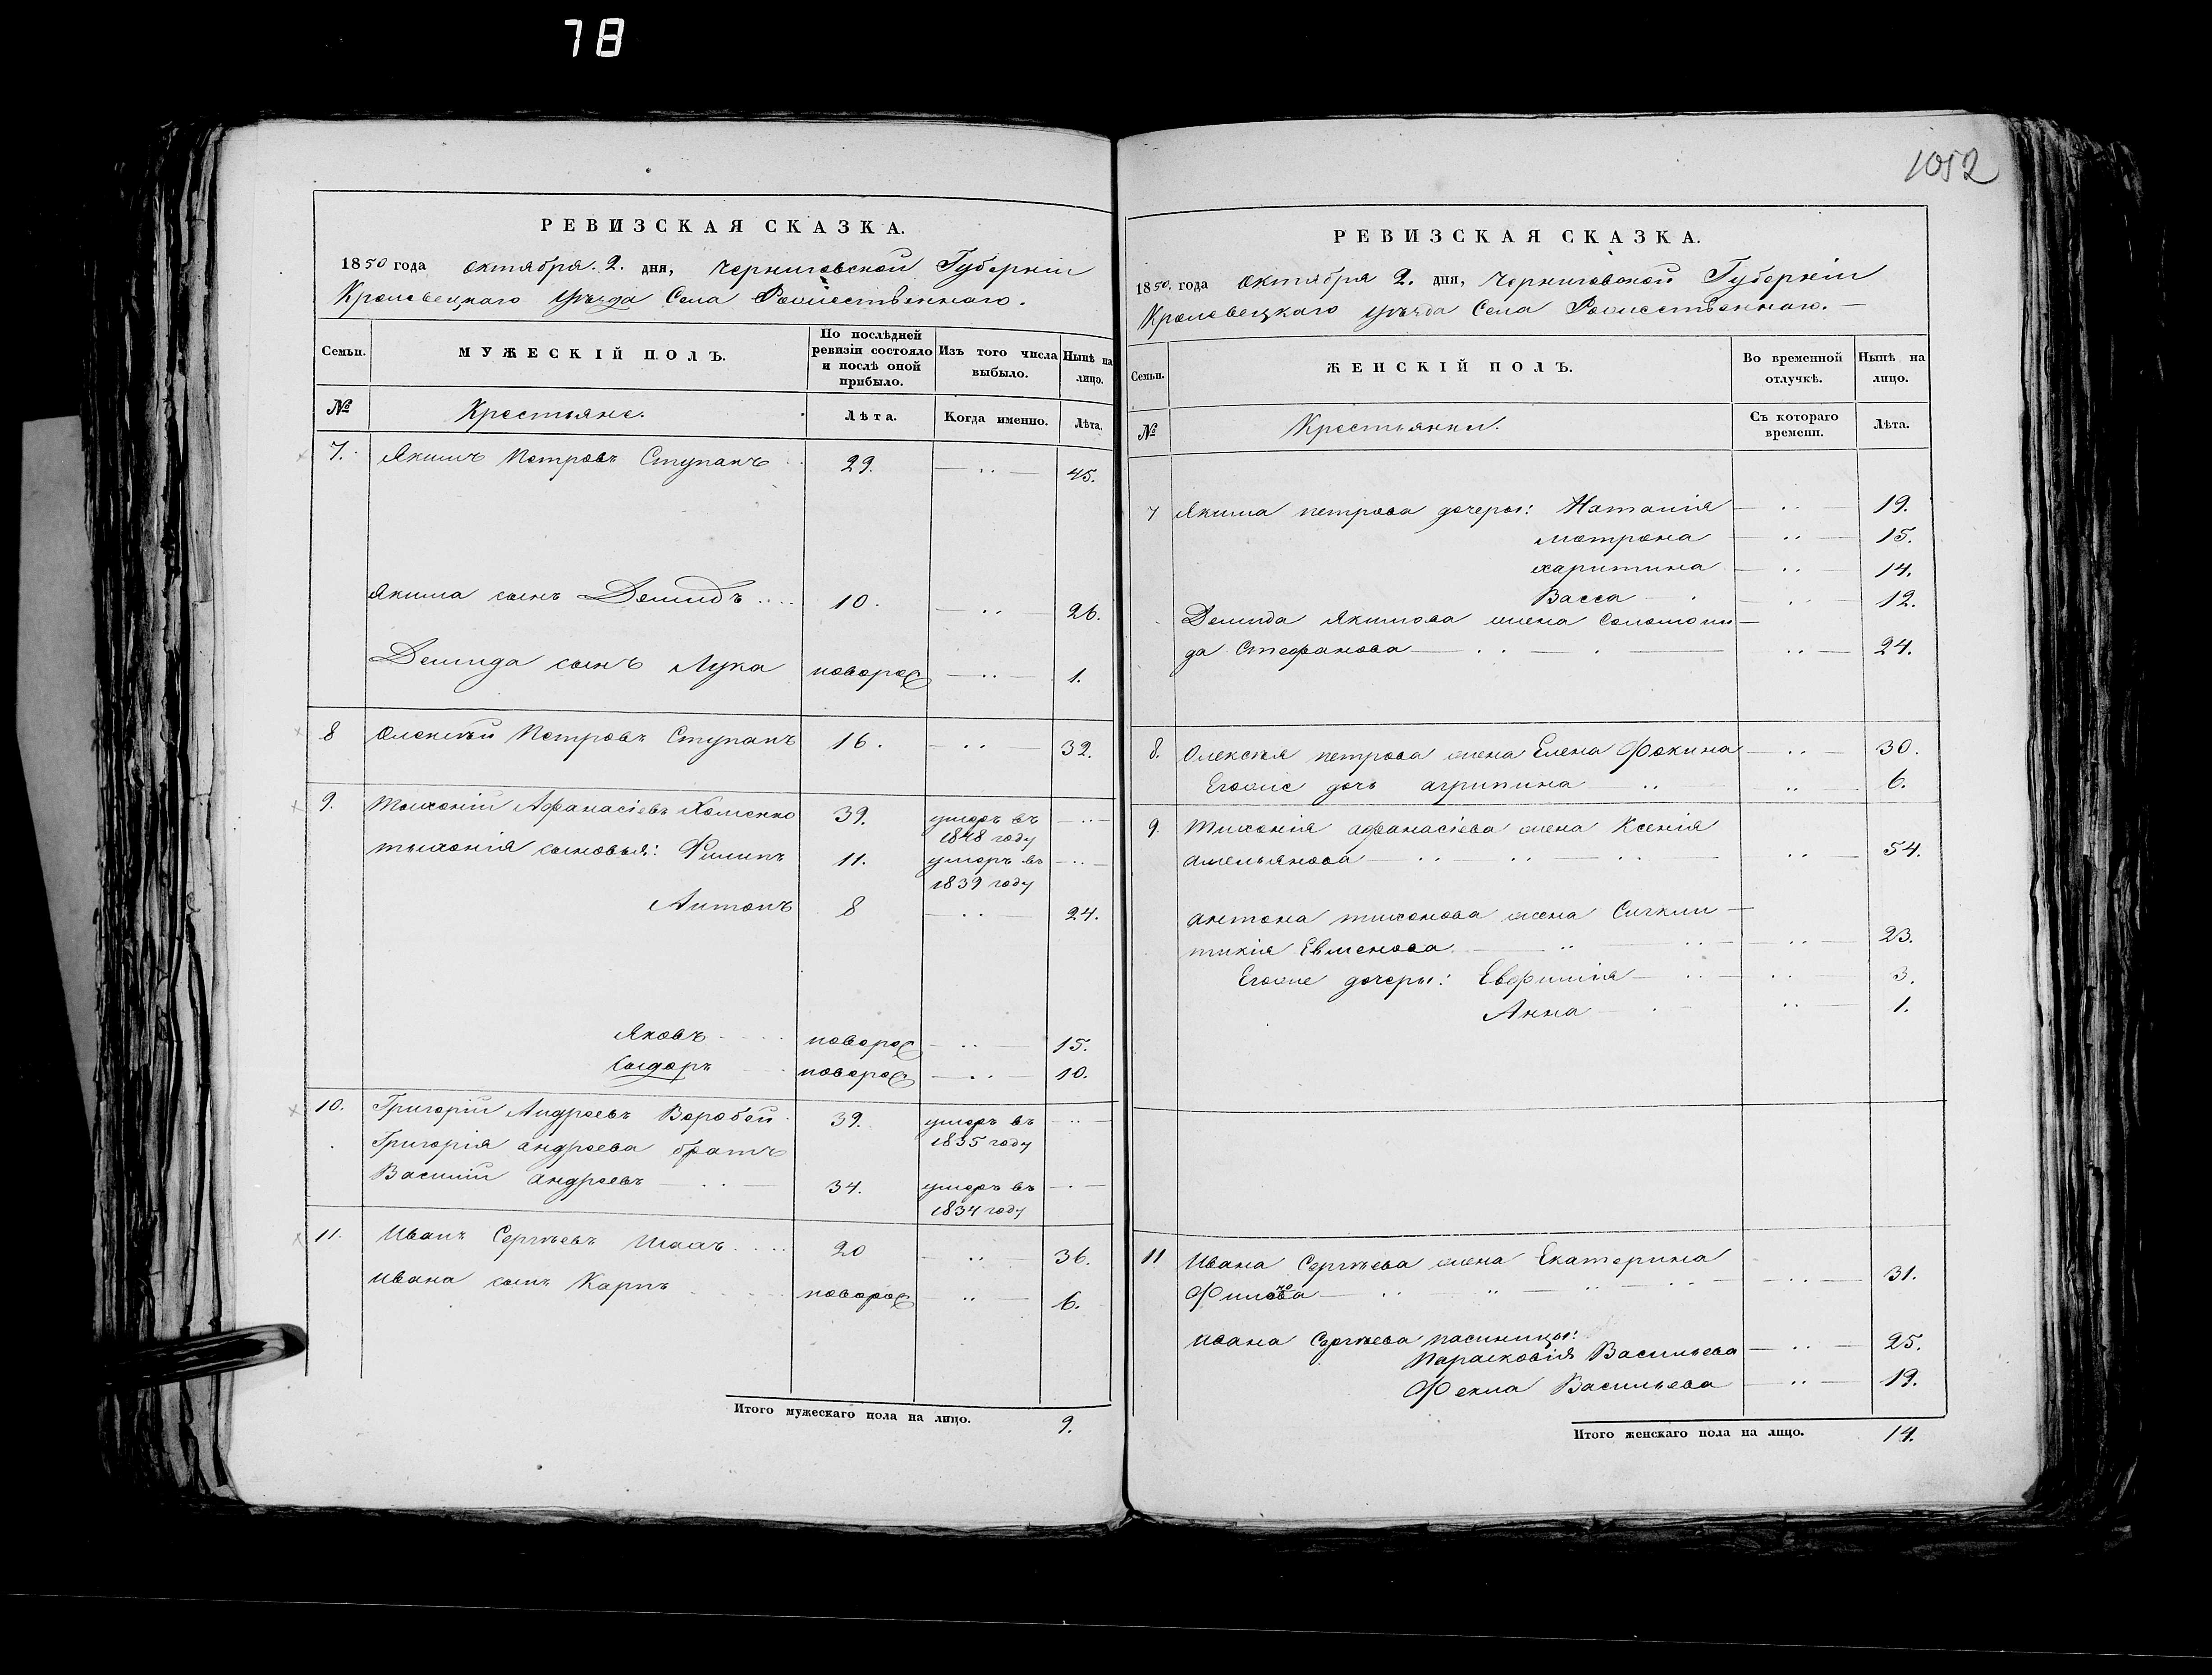 78
1052
РЕВИЗСКАЯ СКАЗКА.
1850 года октября 2. дня, Черниговской Губерніи
Кролевецкаго уѣзда Села Рожественнаго.
Семьи. МУЖЕСКІЙ ПОЛЪ. По послѣдней ревизіи состояло и послѣ оной прибыло. Изъ того числа выбыло. Нынѣ на лицо.
№ Крестьяне. Лѣта. Когда именно. Лѣта.
7. Якимъ Петровъ Ступакъ 29. 45.
Якима сынъ Демидъ 10. 26.
Демида сынъ Лука новорож 1.
8 Олексѣй Петровъ Ступакъ 16. 32.
9. Тихоній Афанасіевъ Хоменко 39. умеръ въ
1848 году
Тихонія сыновья: Филипъ 11. умеръ въ
1839 году
Антонъ 8 24.
Яковъ новорож 15.
Сыдоръ новорож 10.
10. Григорій Андреевъ Воробей 39. умеръ въ
1835 году
Григорія андреева братъ
Василій андреевъ 34. умеръ въ
1834 году
11. Иванъ Сергѣевъ 20 36.
Ивана сынъ Карпъ новорож 6.
Итого мужескаго пола на лицо. 9.
РЕВИЗСКАЯ СКАЗКА.
1850. года октября 2. дня, Черниговской Губерніи
Кролевецкаго уѣзда Села Рожественнаго.
Семьи. ЖЕНСКІЙ ПОЛЪ. Во временной отлучкѣ. Нынѣ на лицо.
№ Крестьянки. Съ котораго времени. Лѣта.
7 Якима петрова дочеры: Наталія 19.
мотрона 15.
харитина 14.
Васса 12.
Демида Якимова жена Соломони-
да Стефанова 24.
8. Олексѣя петрова жена Елена Фокина 30.
Егожъ дочь агрипина 6.
9. Тихонія афанасіева жена Ксенія
амельянова 54.
антона тихонова жена Сигкли-
тикія Евменова 23.
Егоже дочеры: Евфимія 3.
Анна 1.
11 Ивана Сергѣева жена Екатерина
31.
ивана Сергѣева пасиницы:
Парасковія Васильева 25.
Фекла Васильева 19.
Итого женскаго пола на лицо. 14.